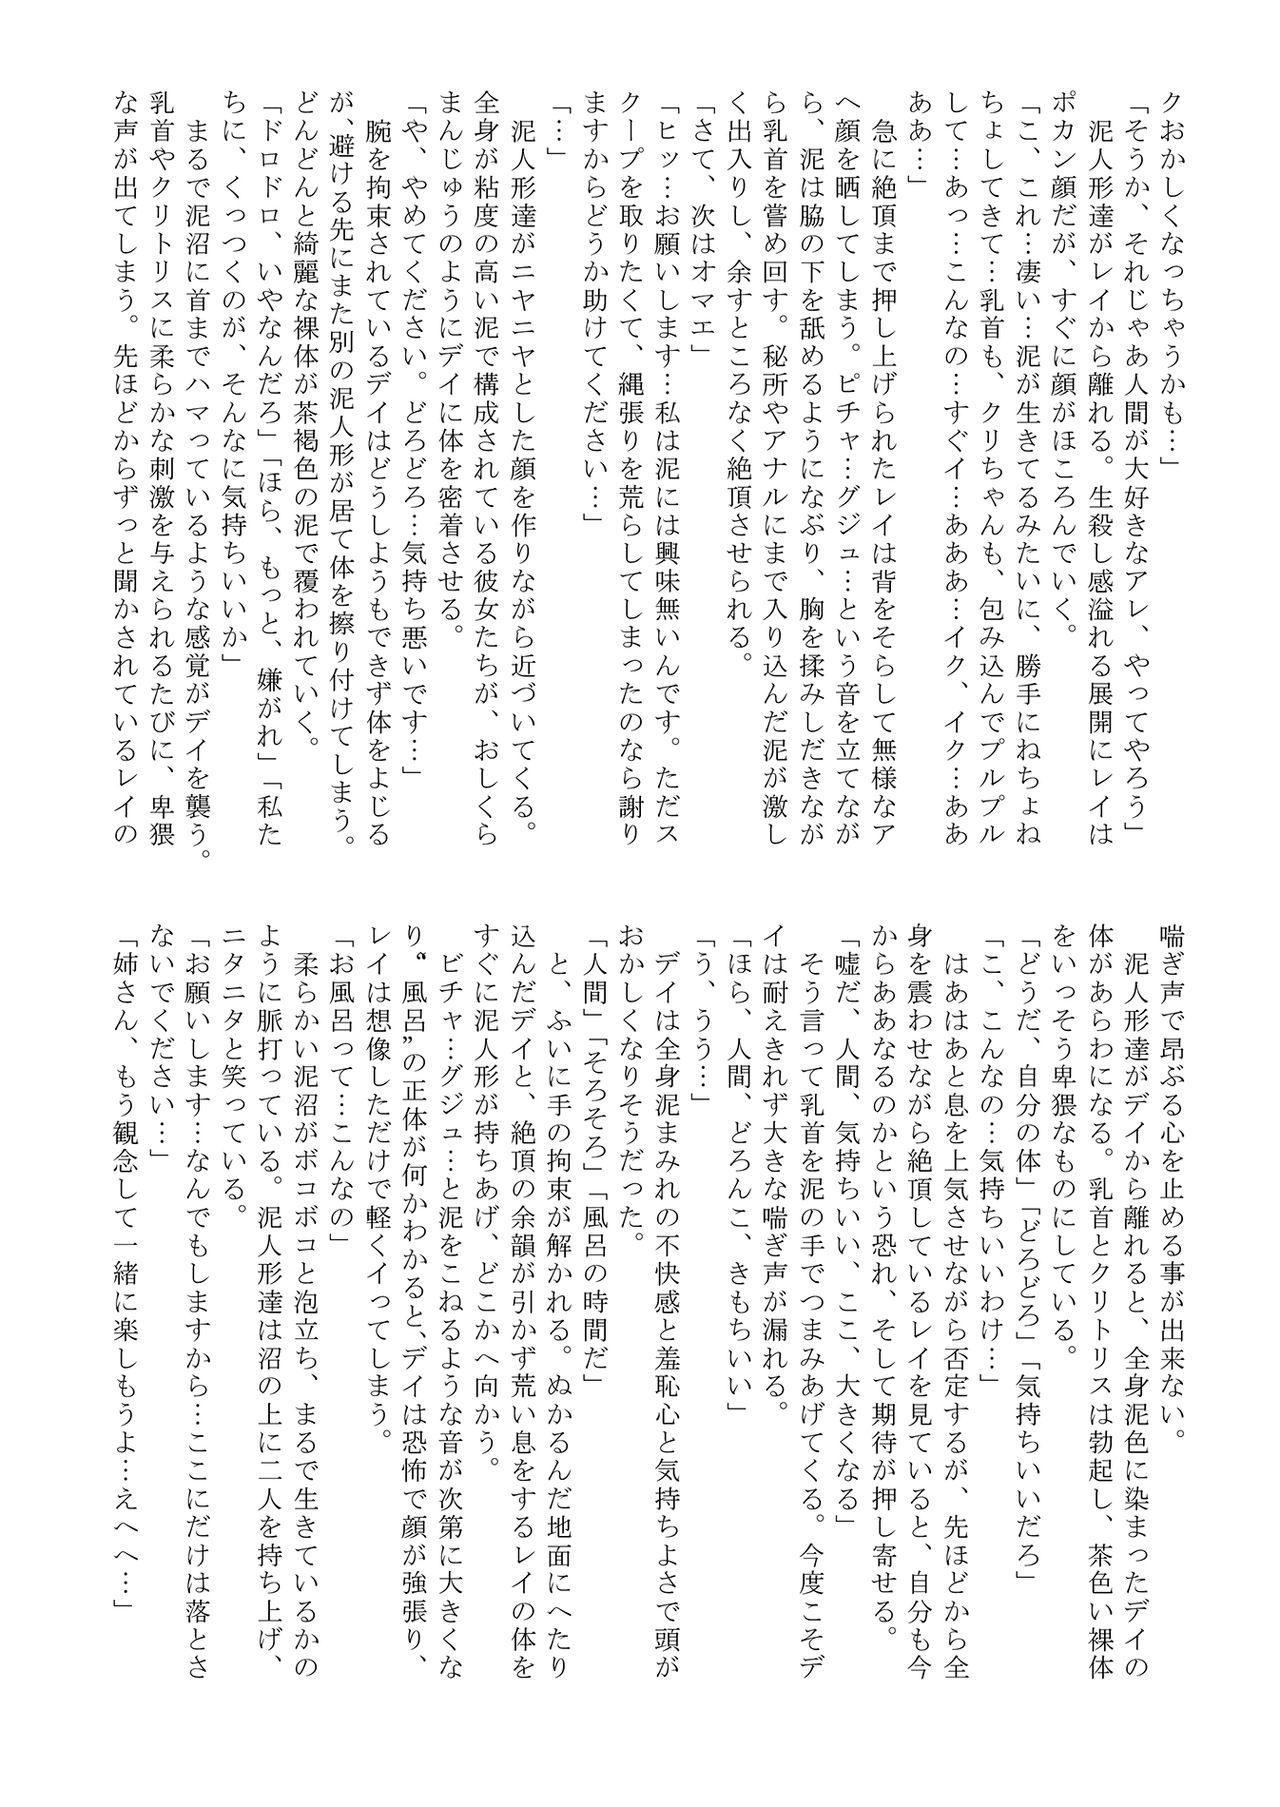 クおかしくなっちゃうかも…」
「そうか、それじゃあ人間が大好きなアレ、やってやろう」
　泥人形達がレイから離れる。生殺し感溢れる展開にレイは
ポカン顔だが、すぐに顔がほころんでいく。
「こ、これ…凄い…泥が生きてるみたいに、勝手にねちょね
ちょしてきて…乳首も、クリちゃんも、包み込んでプルプル
して…あっ…こんなの…すぐイ…あああ…イク、イク…ああ
ああ…」
　急に絶頂まで押し上げられたレイは背をそらして無様なア
へ顔を晒してしまう。ピチャ…グジュ…という音を立てなが
ら、泥は脇の下を舐めるようになぶり、胸を揉みしだきなが
ら乳首を嘗め回す。秘所やアナルにまで入り込んだ泥が激し
く出入りし、余すところなく絶頂させられる。
「さて、次はオマエ」
「ヒッ…お願いします…私は泥には興味無いんです。ただス
クープを取りたくて、縄張りを荒らしてしまったのなら謝り
ますからどうか助けてください…」
「…」
　泥人形達がニヤニヤとした顔を作りながら近づいてくる。
全身が粘度の高い泥で構成されている彼女たちが、おしくら
まんじゅうのようにデイに体を密着させる。
「や、やめてください。どろどろ…気持ち悪いです…」
　腕を拘束されているデイはどうしようもできず体をよじる
が、避ける先にまた別の泥人形が居て体を擦り付けてしまう。
どんどんと綺麗な裸体が茶褐色の泥で覆われていく。
「ドロドロ、いやなんだろ」「ほら、もっと、嫌がれ」「私た
ちに、くっつくのが、そんなに気持ちいいか」
　まるで泥沼に首までハマっているような感覚がデイを襲う。
乳首やクリトリスに柔らかな刺激を与えられるたびに、卑猥
な声が出てしまう。先ほどからずっと聞かされているレイの
喘ぎ声で昂ぶる心を止める事が出来ない。
　泥人形達がデイから離れると、全身泥色に染まったデイの
体があらわになる。乳首とクリトリスは勃起し、茶色い裸体
をいっそう卑猥なものにしている。
「どうだ、自分の体」「どろどろ」「気持ちいいだろ」
「こ、こんなの…気持ちいいわけ…」
　はあはあと息を上気させながら否定するが、先ほどから全
身を震わせながら絶頂しているレイを見ていると、自分も今
からああなるのかという恐れ、そして期待が押し寄せる。
「嘘だ、人間、気持ちいい、ここ、大きくなる」
　そう言って乳首を泥の手でつまみあげてくる。今度こそデ
イは耐えきれず大きな喘ぎ声が漏れる。
「ほら、人間、どろんこ、きもちいい」
「う、うう…」
　デイは全身泥まみれの不快感と羞恥心と気持ちよさで頭が
おかしくなりそうだった。
「人間」「そろそろ」「風呂の時間だ」
　と、ふいに手の拘束が解かれる。ぬかるんだ地面にへたり
込んだデイと、絶頂の余韻が引かず荒い息をするレイの体を
すぐに泥人形が持ちあげ、どこかへ向かう。
　ビチャ…グジュ…と泥をこねるような音が次第に大きくな
り〝風呂〟の正体が何かわかると、デイは恐怖で顔が強張り、
レイは想像しただけで軽くイってしまう。
「お風呂って…こんなの」
　柔らかい泥沼がボコボコと泡立ち、まるで生きているかの
ように脈打っている。泥人形達は沼の上に二人を持ち上げ、
ニタニタと笑っている。
「お願いします…なんでもしますから…ここにだけは落とさ
ないでください…」
「姉さん、もう観念して一緒に楽しもうよ…えへへ…」